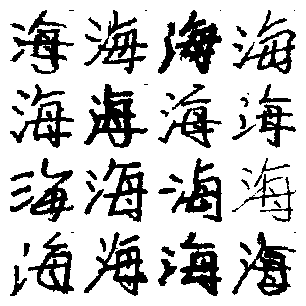 海海海海
海海海海
海海海海
海海海海